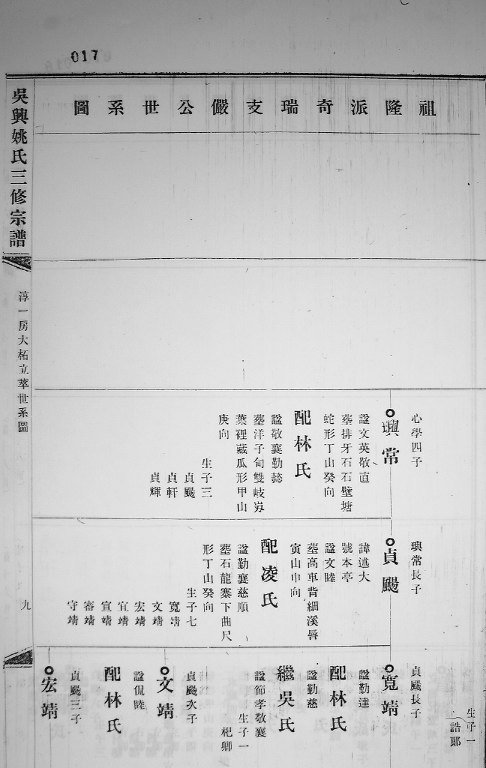 017
祖隆派奇瑞支儼公世系圖
吳興姚氏三修宗譜
淳一房大柘立華世系圖
九
心學四子
興常
諡文英敬直
墓排牙石石壁塘
蛇形丁山癸向
配林氏
諡敬襄勤懿
墓洋子甸雙岐崬
葉裡藏瓜形甲山
庚向
生子三
貞颺
貞軒
貞輝
興常長子
貞颺
諱述大
號本亭
諡文睦
墓高車背綑溪唇
寅山申向
配凌氏
諡勤襄慈順
墓石龍寨下曲尺
形丁山癸向
生子七
寬靖
文靖
宏靖
宜靖
宣靖
審靖
守靖
生子一
誥郎
貞颺長子
寬靖
諡勤達
配林氏
諡勤慈
繼吳氏
諡節孝敬襄
生子一
杞獅
貞颺次子
文靖
諡侃睦
配林氏
貞颺三子
宏靖